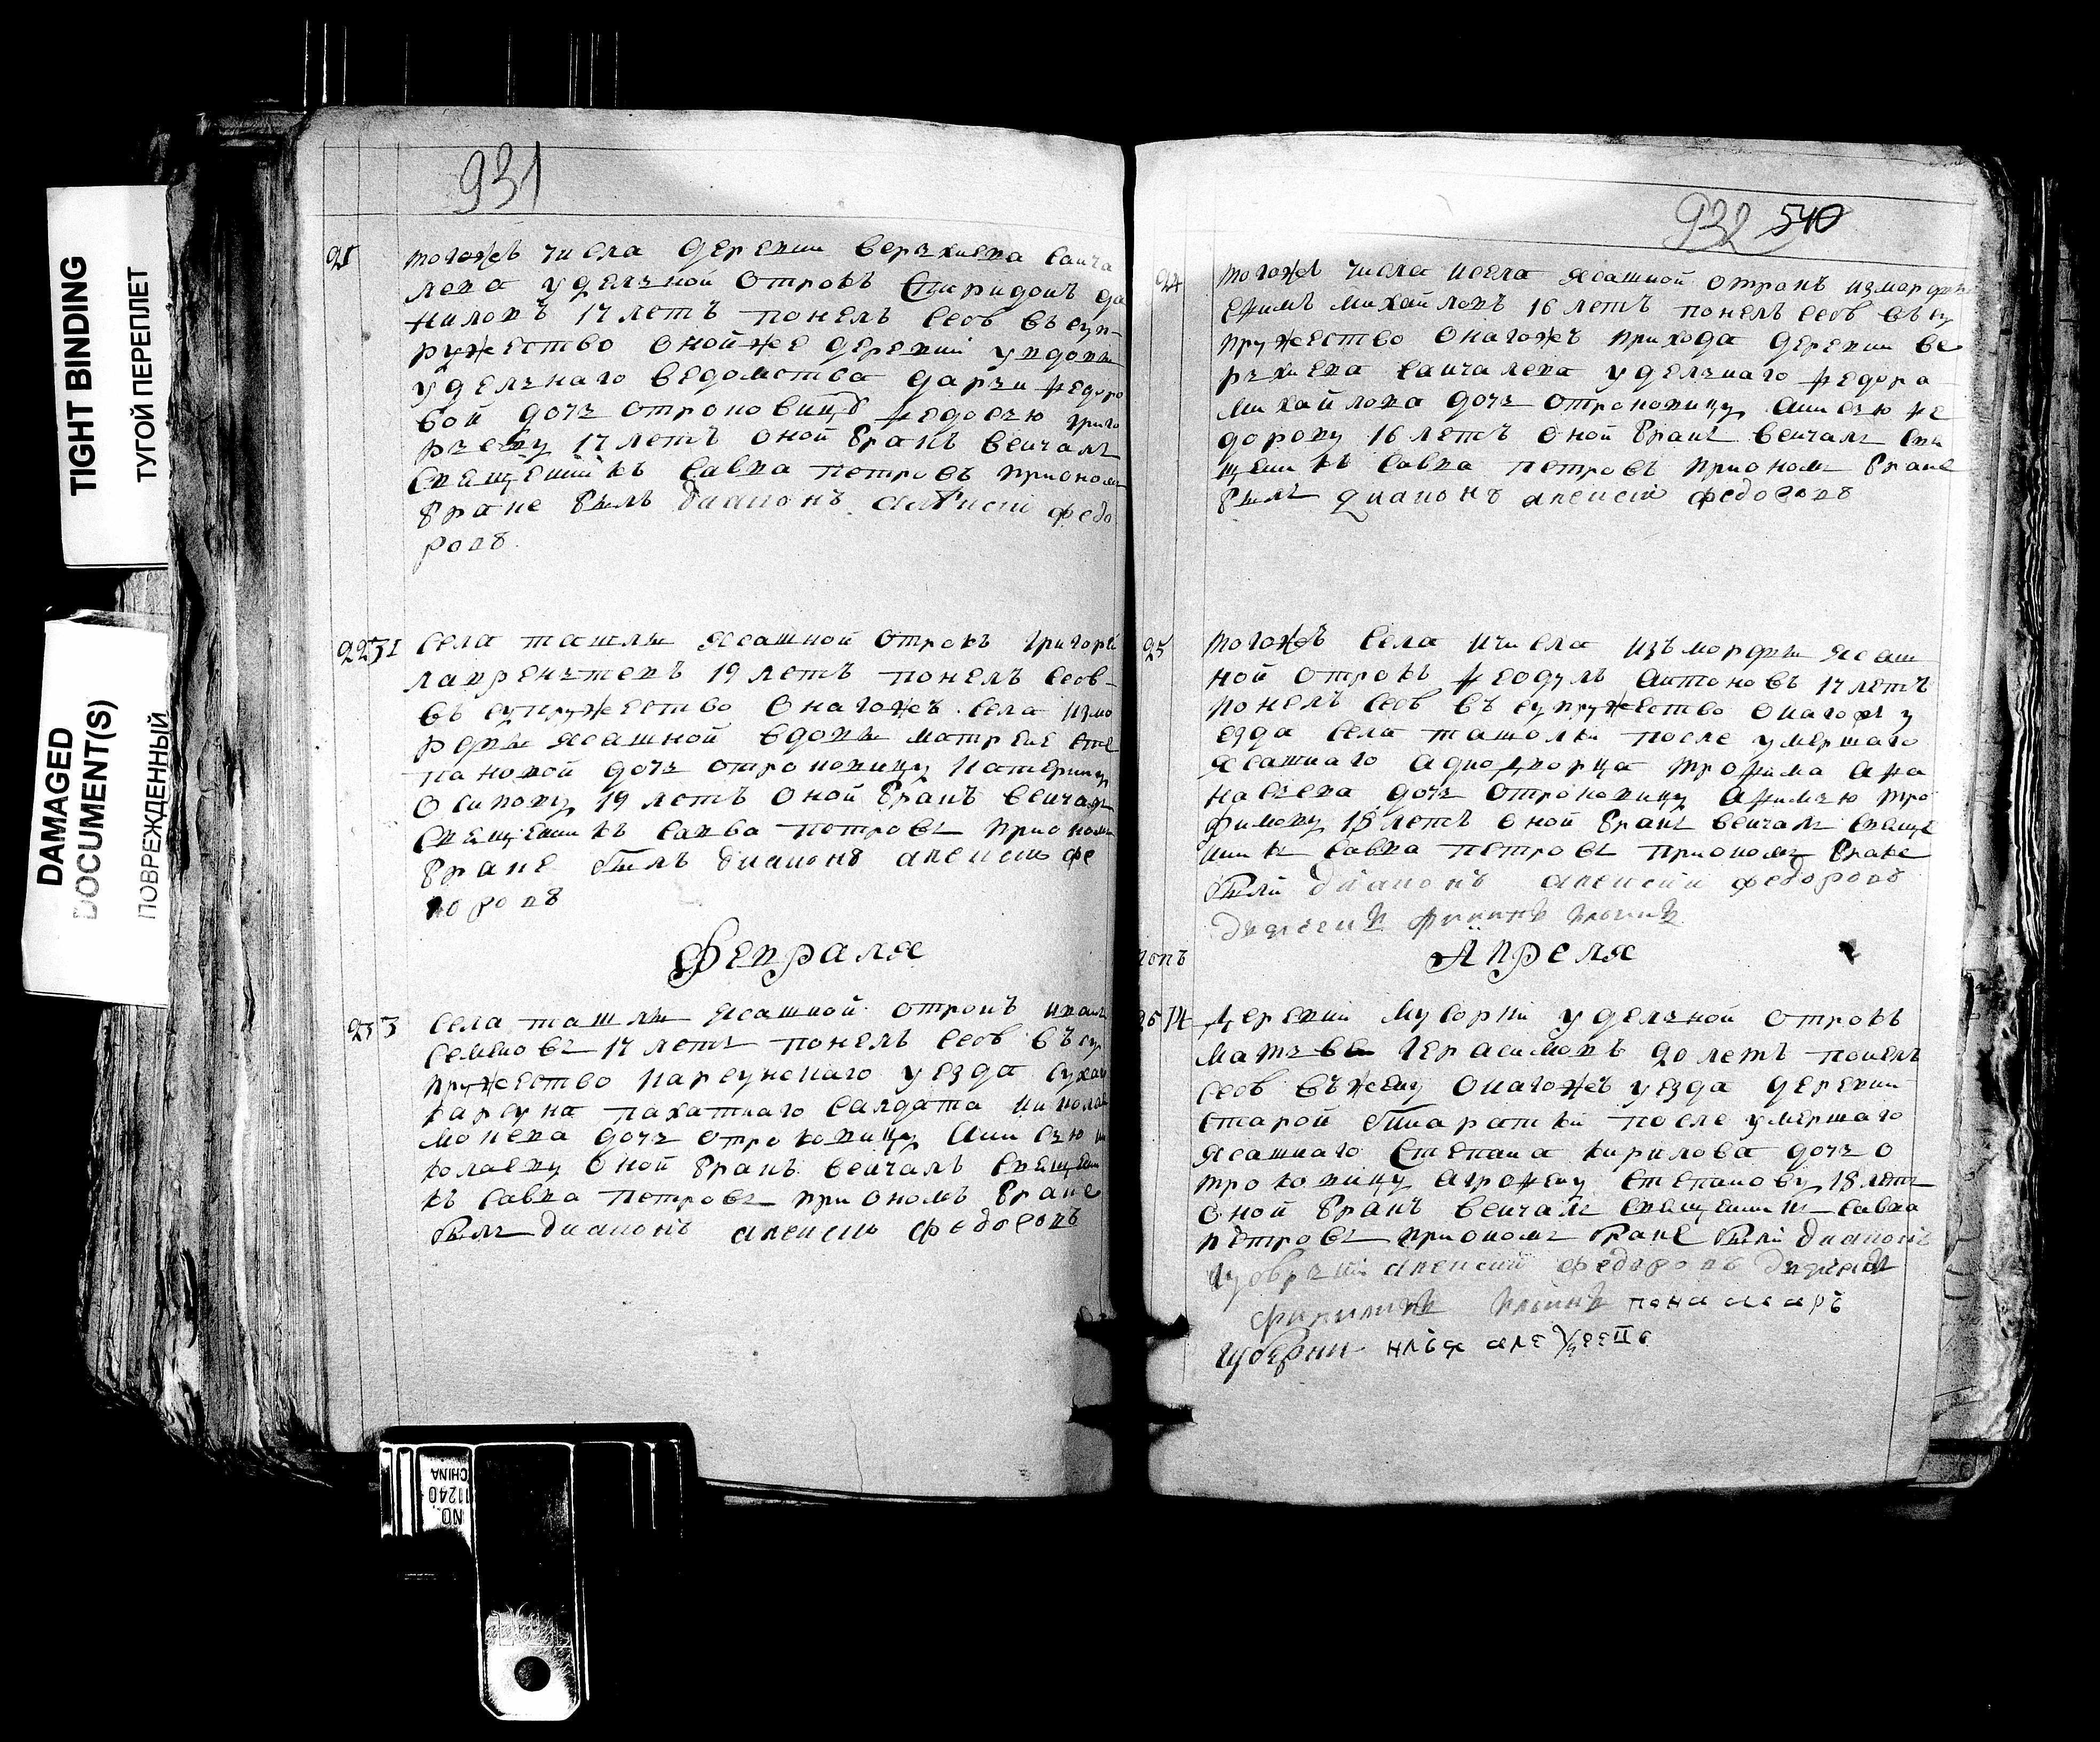 TIGHT BINDING
ТУГОЙ ПЕРЕПЛЕТ
DAMAGED
DOCUMENT(S)
ПОВРЕЖДЕННЫЙ
931
21 тогожъ числа деревни верхнева санча
лева удельной отрокъ Спиридонъ да
ниловъ 17 летъ понелъ себѣ въ суп-
ружество оной же деревни у вдовы
удельнаго ведомства дарьи федоро
вой дочь отроковицу федосью григо
рьеву 17 летъ оной бракъ венчалъ
священникъ савва петровъ приономъ
браке былъ диаконъ алексий федо
ровъ
22 31 села ташлы ясашной отрокъ григорей
лаврентьевъ 19 летъ понелъ себѣ
въ супружество онагожъ села измо
рфы ясашной вдовы матрене сте
пановой дочь отроковицу катерину
осипову 19 летъ оной бракъ венчалъ
священникъ савва петровъ приономъ
браке былъ диаконъ алексий фе
доровъ
Февраля
23 3 села ташлы ясашной отрокъ иванъ
семеновъ 17 летъ понелъ себѣ въ су
пружество карсунскаго уезда сухова
карсуна пахатнаго салдата николая
мокева дочь отроковицу анисью ни
колаеву оной бракъ венчалъ священни
къ савва петровъ при ономъ браке
былъ диаконъ алексий федоровъ
932 540
24 тогожъ числа исела ясашной отрокъ изморфы
ефимъ михайловъ 16 летъ понелъ себѣ въ су
пружество онагожъ прихода деревни ве
рхнева санчалева удельнаго федора
михайлова дочь отроковицу анисью фе
дорову 16 летъ оной бракъ венчалъ свя
щенникъ савва петровъ приономъ браке
былъ диаконъ алексий федоровъ
25 тогожъ села ичисла изъ морфы ясаш
ной отрокъ феодулъ антоновъ 17 летъ
понелъ себѣ въ супружество онагожъ у
езда села ташолки после умершаго
ясашнаго аднодворца трофима афа
насьева дочь отроковицу афимью тро
фимову 18 летъ оной бракъ венчалъ свяще
нникъ савва петровъ приономъ браке
были диаконъ алексий федоровъ
дьячекъ филипъ ильинъ
Апреля
26 14 деревни мусорки удельной отрокъ
матвей герасимовъ 20 летъ понелъ
себѣ въжену онагожъ уезда деревни
старой бинаратки после умершаго
ясашнаго степана кирилова дочь о
троковицу агрофену степанову 18 летъ
оной бракъ венчалъ священникъ савва
петровъ приономъ браке были диаконъ
алексий федоровъ дьячекъ
филипъ ильинъ понамарь
илья алексеевъ
NO.
11240
CHINA